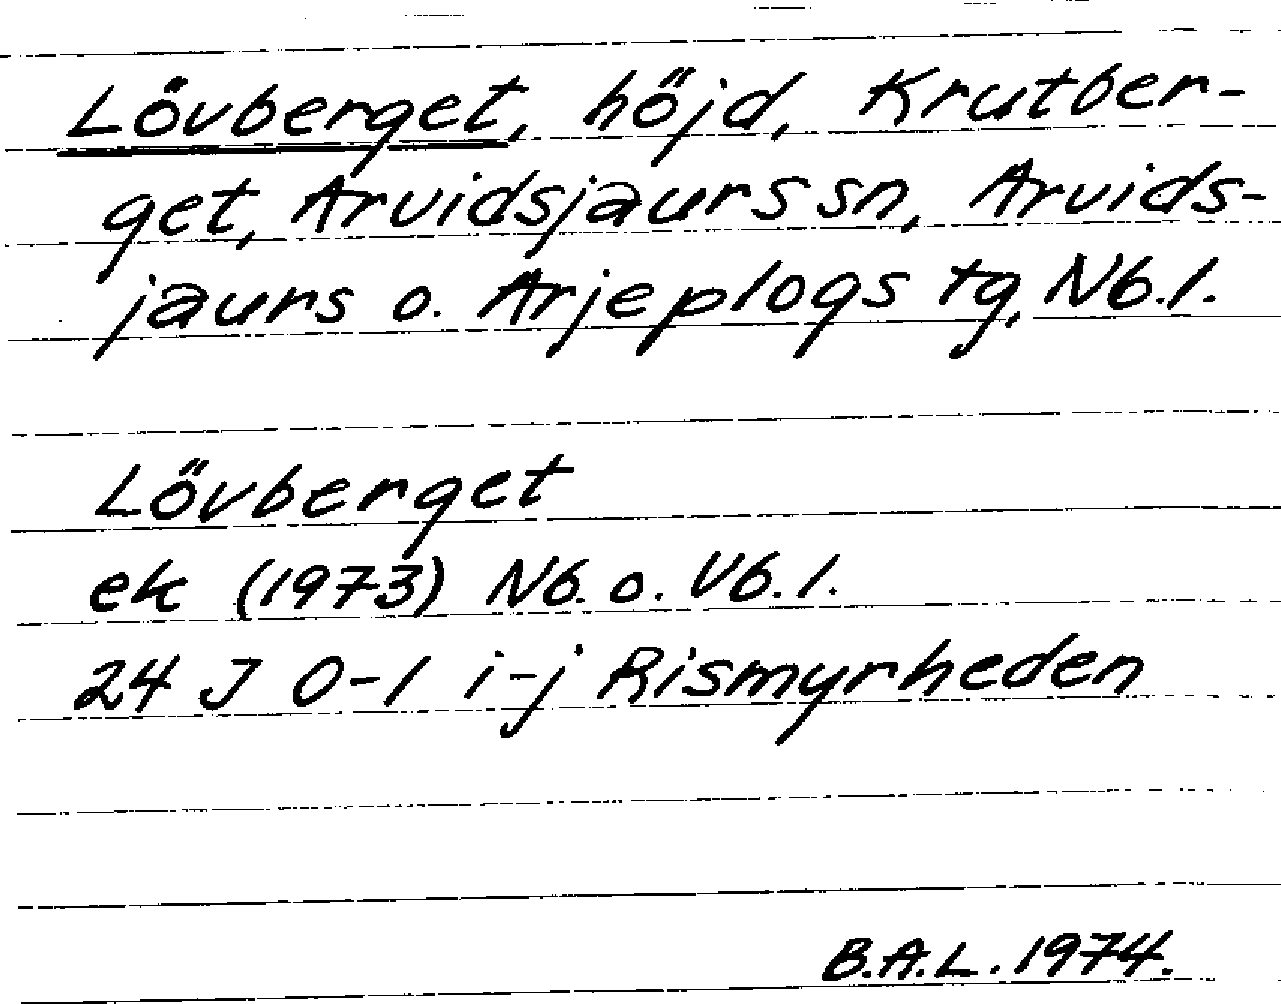 Lövberget, höjd, Krutber-
get, Arvidsjaurs sn, Arvids-
jaurs o. Arjeplogs tg, Nb.l.
Lövberget
ek (1973) Nb. o. Vb.l.
24 J 0-1 i-j Rismyrheden
B.A.L. 1974.